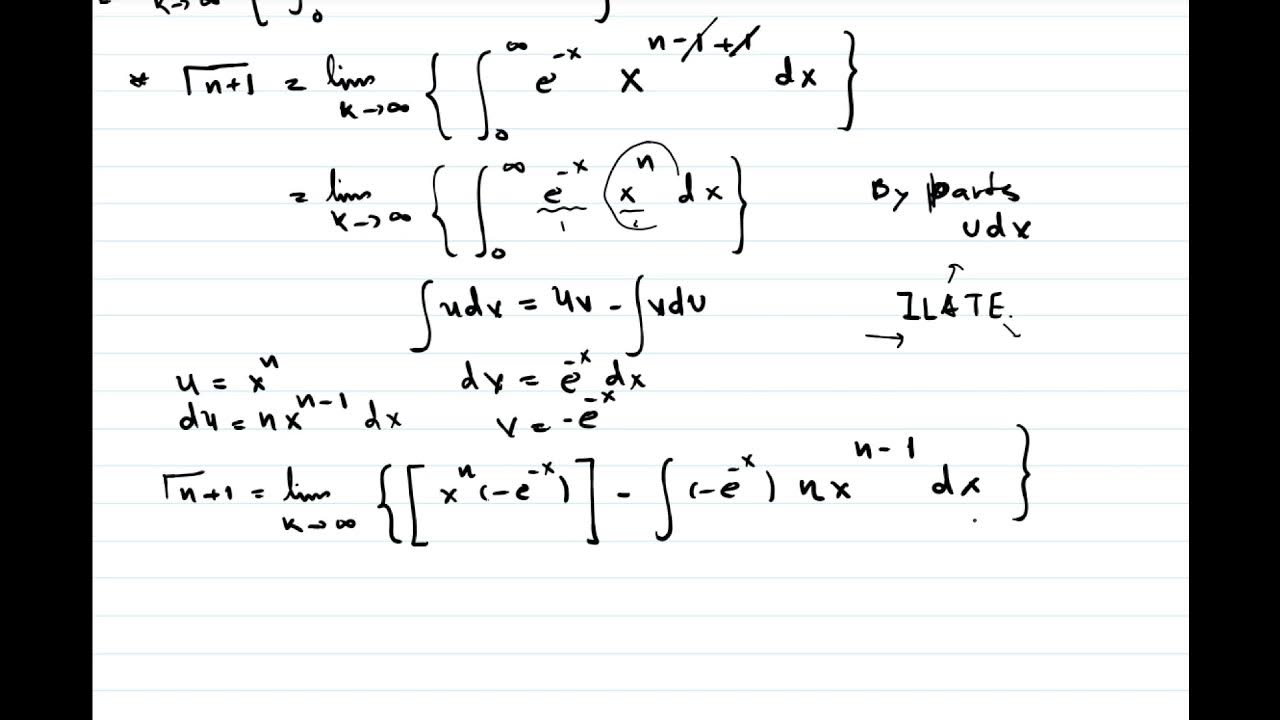 k→∞ { ∫₀ }
* Γn+1 = lim k→∞ { ∫₀^∞ e^-x x^n-1+1 dx }
= lim k→∞ { ∫₀^∞ e^-x x^n dx }
By parts
udx
∫udv = uv - ∫vdu
ILATE.
u = x^n dv = e^-x dx
du = nx^n-1 dx v = -e^-x
Γn+1 = lim k→∞ { [ x^n (-e^-x) ] - ∫(-e^-x) nx^n-1 dx }